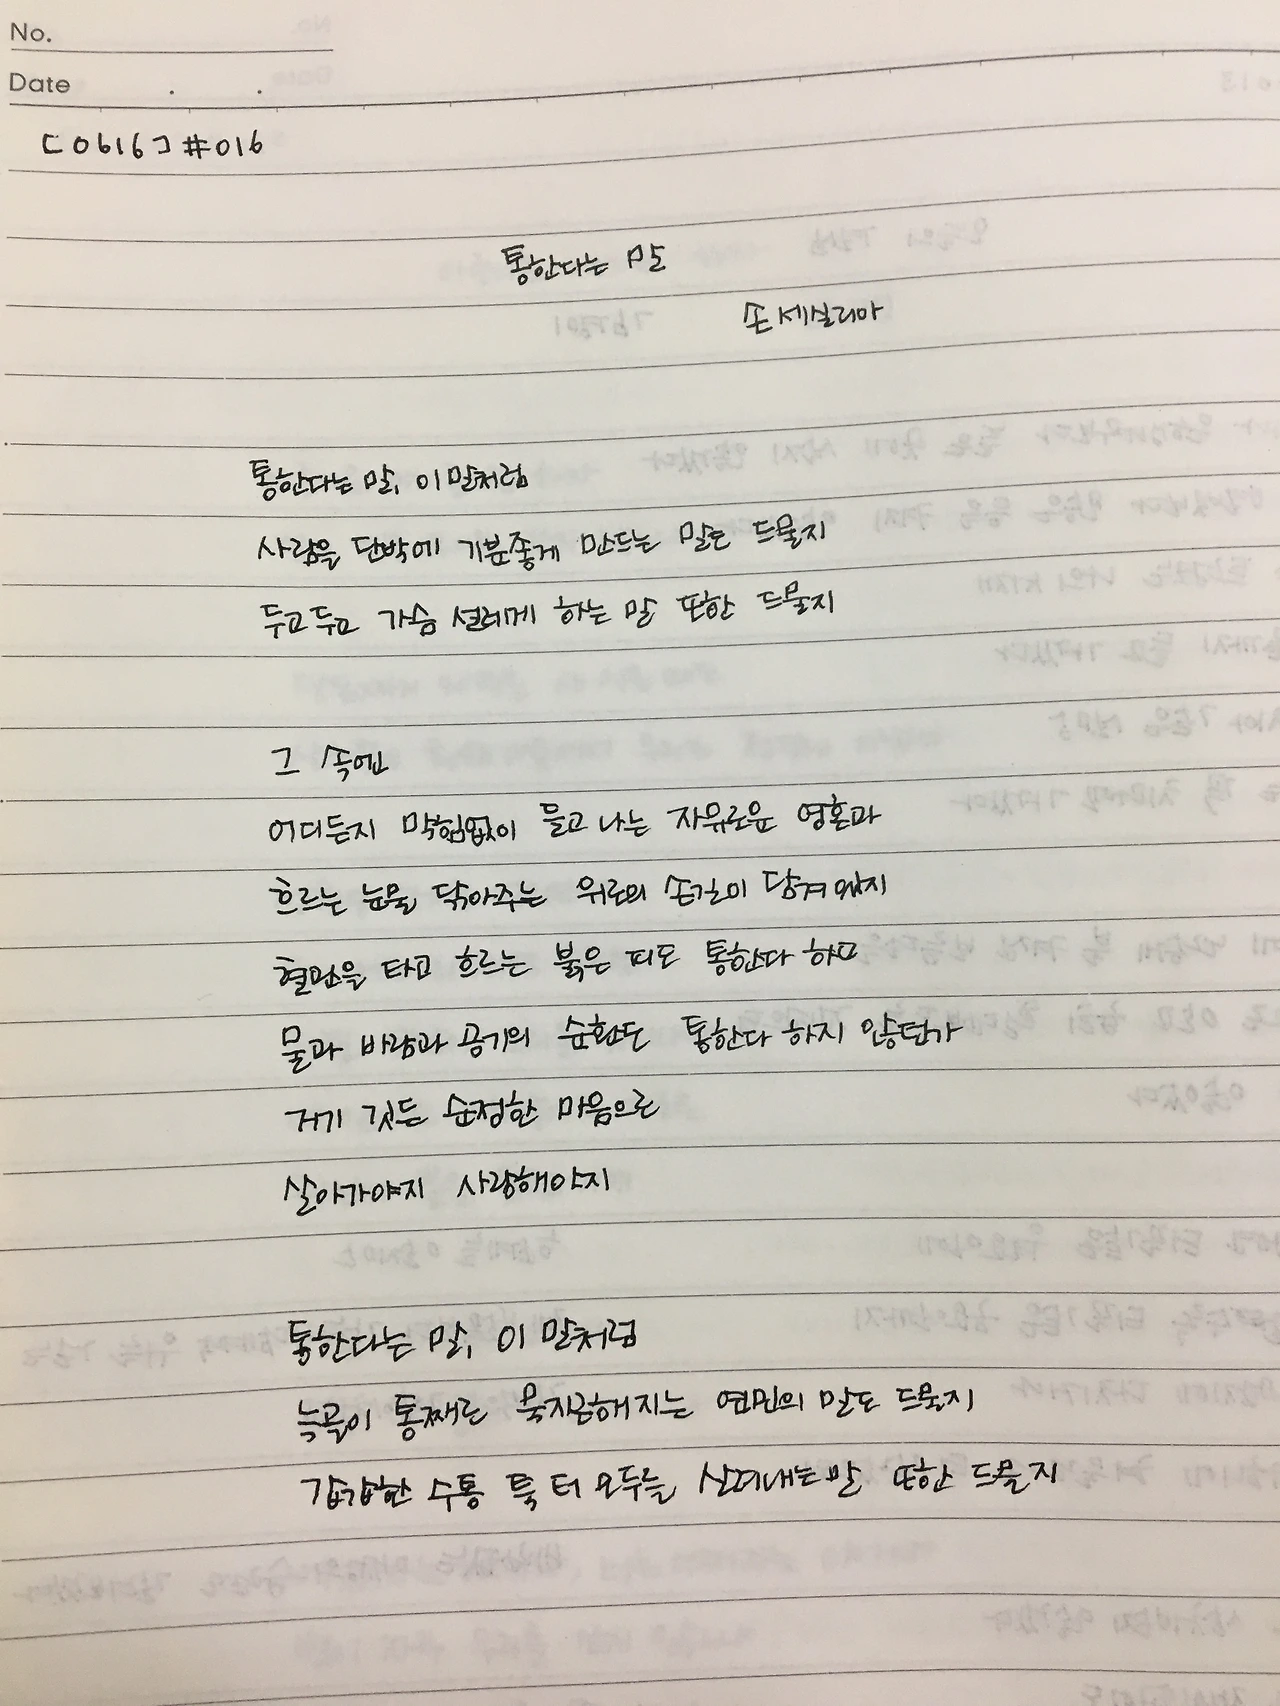 No.
Date . .
[0616] #016
통한다는 말
손 세실리아
통한다는 말, 이 말처럼
사람을 단박에 기분좋게 만드는 말도 드물지
두고두고 가슴 설레게 하는 말 또한 드물지
그 속엔
어디든지 막힘없이 들고 나는 자유로운 영혼과
흐르는 눈물 닦아주는 위로의 손길이 담겨있지
혈관을 타고 흐르는 붉은 피도 통한다 하고
물과 바람과 공기의 순환도 통한다 하지 않던가
거기 깃든 순정한 마음으로
살아가야지 사랑해야지
통한다는 말, 이 말처럼
늑골이 통째로 묵지근해지는 연민의 말도 드물지
갑갑한 숨통 툭 터 모두를 살려내는 말 또한 드물지